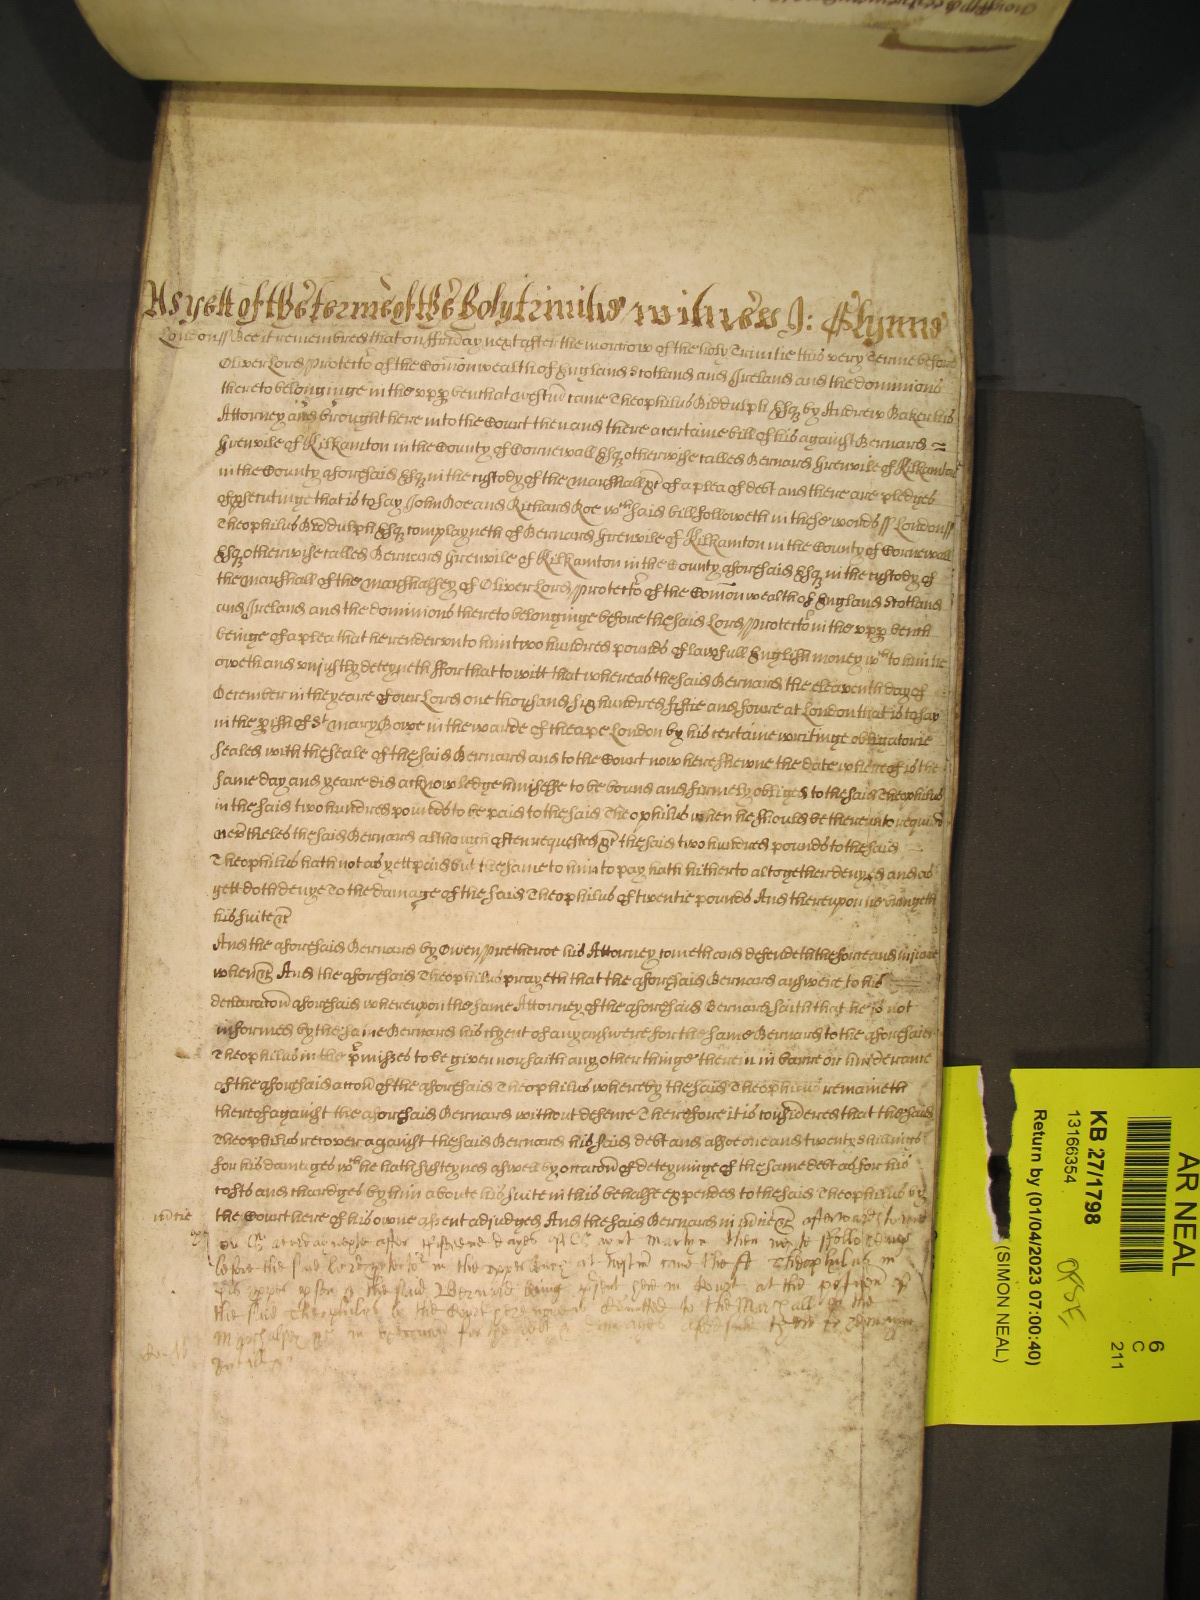 As yett of the terme of the Holy Trinitie witnes J: Glynne
London ss Bee it remembred that on ffriday next after the morrow of the holy Trinitie this very Terme before
Oliver Lord Protector of the Comonwealth of England Scotland and Ireland and the dominions
thereto belonginge in the upp bench at westm came Theophilus Biddulph Esq by Andrew Baker his
Attorney and brought here into the Court then and there a certaine bill of his against Bernard =
Grenvile of Kilkamton in the County of Cornewall Esq otherwise called Bernard Grenvile of Kilkamton
in the County aforesaid Esq in the custody of the marshall &c of a plea of debt and there are pledges
of psecutinge that is to say John Doe and Richard Roe wch said bill followeth in these words ss London ss
Theophilus Biddulph Esq complayneth of Bernard Grenvile of Kilkamton in the County of Cornewall
Esq otherwise called Bernard Grenvile of Kilkamton in the County aforesaid Esq in the custody of
the marshall of the marshalsey of Oliver Lord Protector of the Comonwealth of England Scotland
and Ireland and the dominions thereto belonginge before the said Lord Protector in the upp bench
beinge of a plea that he render unto him two hundred pounds of lawfull English money wch to him he
oweth and unjustly deteyneth ffor that to witt that whereas the said Bernard the eleaventh day of
December in the yeare of our Lord one thousand six hundred fiftie and foure at London that is to say
in the pish of St Mary Bowe in the warde of Cheape London by his certaine writinge obligatorie
Sealed with the seale of the said Bernard and to the Court now here shewne the date whereof is the
same day and yeare did acknowledge himselfe to be bound and firmely obliged to the said Theophilus
in the said two hundred pounds to be paid to the said Theophilus when he should be thereunto required
nevtheles the said Bernard although often requested &c the said two hundred pounds to the said
Theophilus hath not as yett paid but the same to him to pay hath hitherto altogether denyed and as
yett doth denye To the damage of the said Theophilus of twentie pounds And thereupon he bringeth
his suite &c
And the aforesaid Bernard by Owen Pretheroe his Attorney cometh and defendeth the force and injurie
when &c And the aforesaid Theophilus prayeth that the aforesaid Bernard answere to his
declaracon aforesaid whereupon the same Attorney of the aforesaid Bernard saith that he is not
informed by the same Bernard his clyent of any answere for the same Bernard to the aforesaid
Theophilus in the pmisses to be given nor saith any other thinge therein in barre or hinderance
of the aforesaid accon of the aforesaid Theophilus whereby the said Theophilus remaineth
thereof against the aforesaid Bernard without defence Therefore it is considered that the said
Theophilus recover against the said Bernard his said debt and also one and twenty shillings
for his damages wch he hath susteyned aswell by occacon of deteyninge of the same debt as for his
costs and chardges by him aboute his suite in this behalfe expended to the said Theophilus by
the Court here of his owne assent adjudged And the said Bernard in mcie &c afterwards to witt
on
before the said Lord Protector in the upper bench at westm came the sd Theophilus in
his pper pson & the said Bernard being psent here in Court at the
the said Theophilus by the Court
Marshalsey &c in execucon for the debt & damages aforesaid there to remayne
untill &c
AR NEAL
KB 27/1798
13166354
Return by (01/04/2023 07:00:40)
(SIMON NEAL)
6
C
211